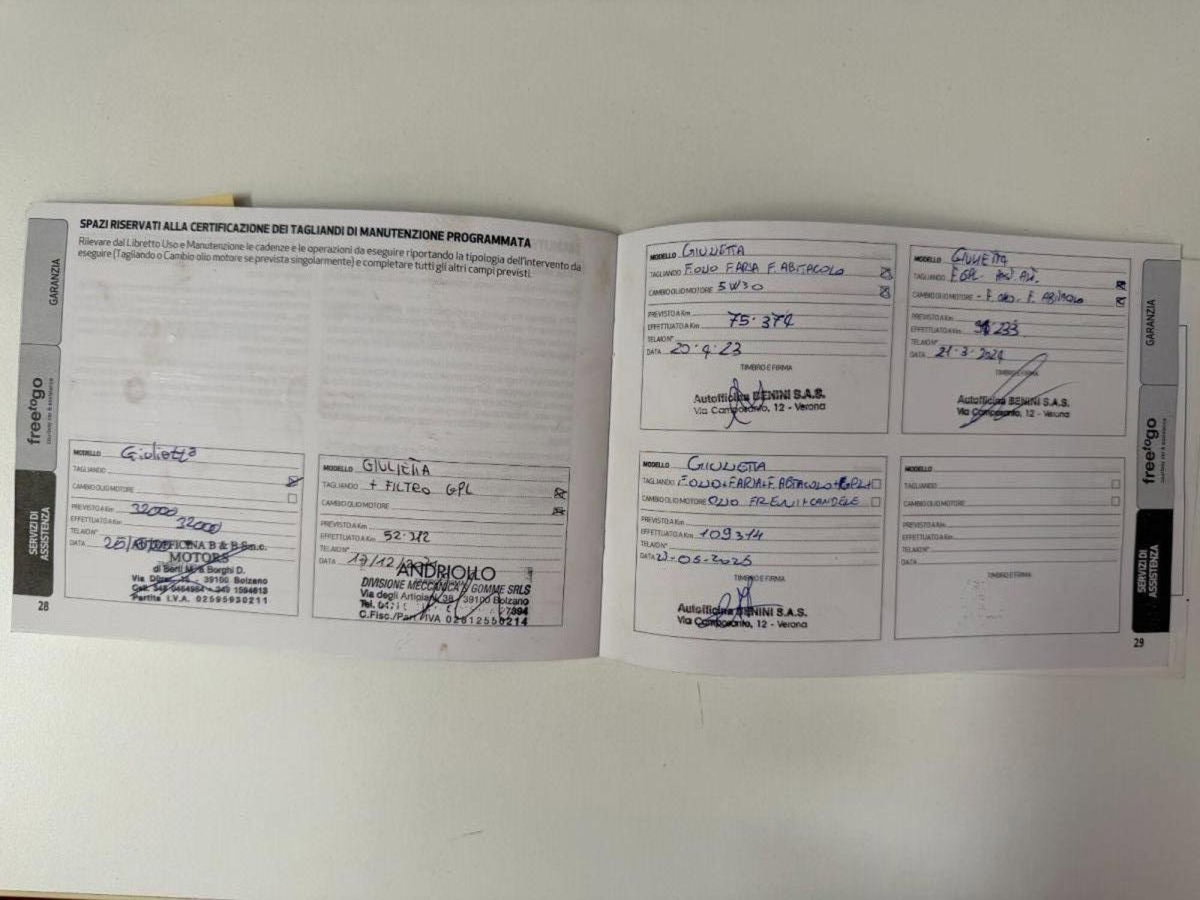 SPAZI RISERVATI ALLA CERTIFICAZIONE DEI TAGLIANDI DI MANUTENZIONE PROGRAMMATA
Rilevare dal Libretto Uso e Manutenzione le cadenze e le operazioni da eseguire riportando la tipologia dell'intervento da
eseguire (Tagliando o Cambio olio motore se prevista singolarmente) e completare tutti gli altri campi previsti.
GARANZIA
freetogo
SERVIZI DI
ASSISTENZA
MODELLO Giulietta
TAGLIANDO
CAMBIO OLIO MOTORE
PREVISTO A Km 32000
EFFETTUATO A Km 32000
TELAIO N°
DATA
AUTOFFICINA B & B S.n.c.
MOTORS
di Berti M. & Borghi D.
39100 Bolzano
Partita I.V.A. 02595930211
28
MODELLO GIULIETTA
TAGLIANDO + FILTRO GPL
CAMBIO OLIO MOTORE
PREVISTO A Km
EFFETTUATO A Km 52.312
TELAIO N°
DATA 17/12/
ANDRIOLLO
DIVISIONE MECCANICA GOMME SRLS
Via degli Artigiani 38 39100 Bolzano
Tel.
C.Fisc./Part. IVA 02812550214
MODELLO GIULIETTA
TAGLIANDO F. OLIO F ARIA F. ABITACOLO
CAMBIO OLIO MOTORE 5W30
PREVISTO A Km
EFFETTUATO A Km 75.374
TELAIO N°
DATA 20.4.23
TIMBRO E FIRMA
Autofficina BENINI S.A.S.
Via Camposanto, 12 - Verona
MODELLO GIULIETTA
TAGLIANDO F. GPL -
CAMBIO OLIO MOTORE - F. OLIO - F. ABITACOLO
PREVISTO A Km
EFFETTUATO A Km 233
TELAIO N°
DATA 21-3-2024
TIMBRO E FIRMA
Autofficina BENINI S.A.S.
Via Camposanto, 12 - Verona
MODELLO GIULIETTA
TAGLIANDO F. OLIO + F ARIA + F. ABITACOLO + GPL +
CAMBIO OLIO MOTORE OLIO FRENI + CANDELE
PREVISTO A Km
EFFETTUATO A Km 109314
TELAIO N°
DATA -05-2025
TIMBRO E FIRMA
Autofficina BENINI S.A.S.
Via Camposanto, 12 - Verona
MODELLO
TAGLIANDO
CAMBIO OLIO MOTORE
PREVISTO A Km
EFFETTUATO A Km
TELAIO N°
DATA
TIMBRO E FIRMA
GARANZIA
freetogo
SERVIZI DI
ASSISTENZA
29